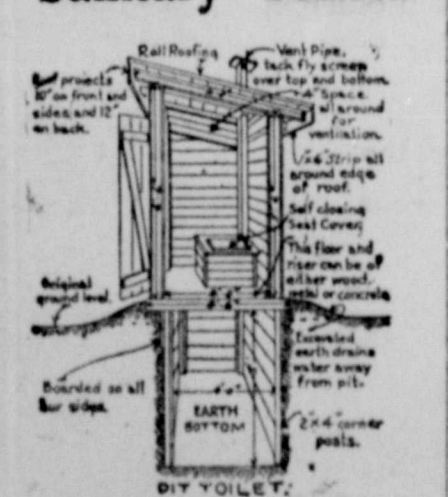 Roll Roofing
Vent Pipe.
tack fly screen
over top and bottom.
projects
10" on front and
sides, and 12"
on back.
4" Space
all around
for
ventilation.
1"x6" Strip all
around edge
of roof.
Self closing
Seat Cover.
This floor and
riser can be of
either wood,
metal or concrete
Original
ground level.
Excavated
earth drains
water away
from pit.
Boarded on all
four sides.
EARTH
BOTTOM
2"x4" corner
posts.
PIT TOILET.